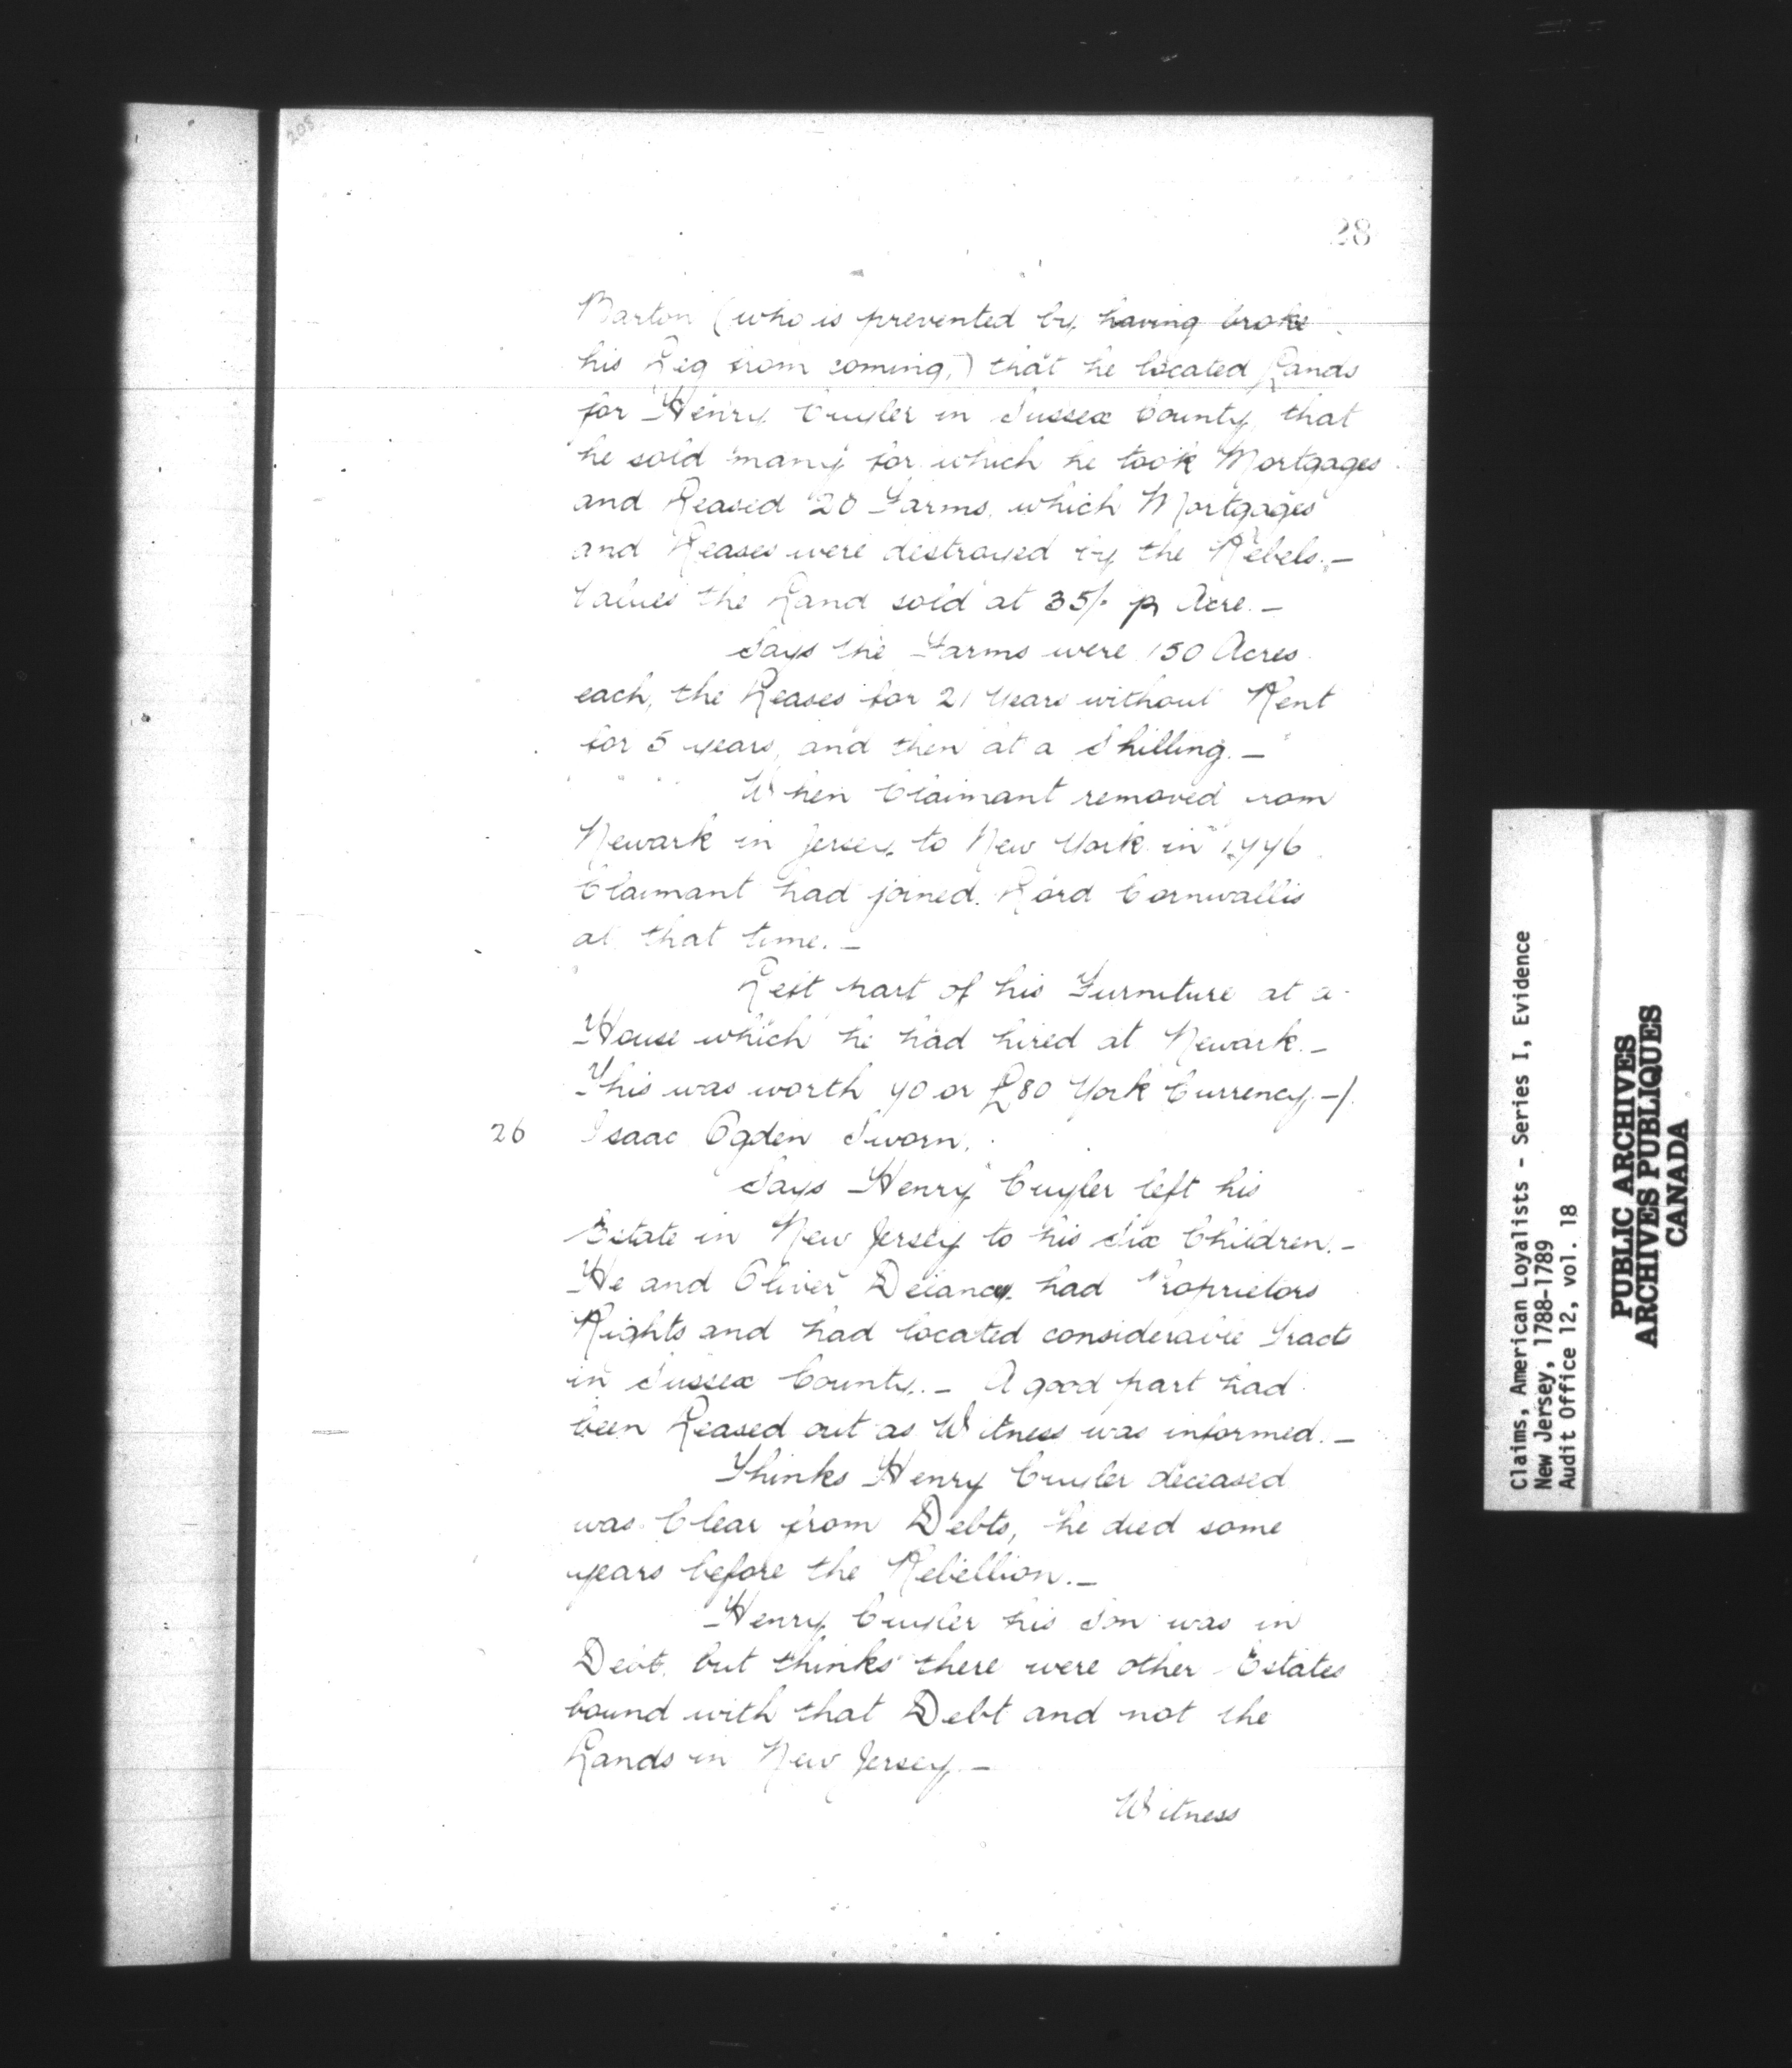 208
28
Barton (who is prevented by having broke
his Leg from coming,) that he located Lands
for Henry Cuyler in Sussex County, that
he sold many for which he took Mortgages
and Leased 20 Farms, which Mortgages
and Leases were destroyed by the Rebels. —
Values the Land sold at 35/- p Acre. —
Says the Farms were 150 Acres
each, the Leases for 21 Years without Rent
for 5 years, and then at a Shilling. —
When Claimant removed from
Newark in Jersey to New York in 1776
Claimant had joined Lord Cornwallis
at that time. —
Left part of his Furniture at a
House which he had hired at Newark. —
This was worth 70 or £80 York Currency —/.
26 Isaac Ogden Sworn.
Says Henry Cuyler left his
Estate in New Jersey to his Six Children. —
He and Oliver Delancy had Proprietors
Rights and had located considerable Tracts
in Sussex County. — A good part had
been Leased out as Witness was informed. —
Thinks Henry Cuyler deceased
was Clear from Debts, he died some
years before the Rebellion. —
Henry Cuyler his Son was in
Debt, but thinks there were other Estates
bound with that Debt and not the
Lands in New Jersey —
Witness
Claims, American Loyalists - Series I, Evidence
New Jersey, 1788-1789
Audit Office 12, vol. 18
PUBLIC ARCHIVES
ARCHIVES PUBLIQUES
CANADA